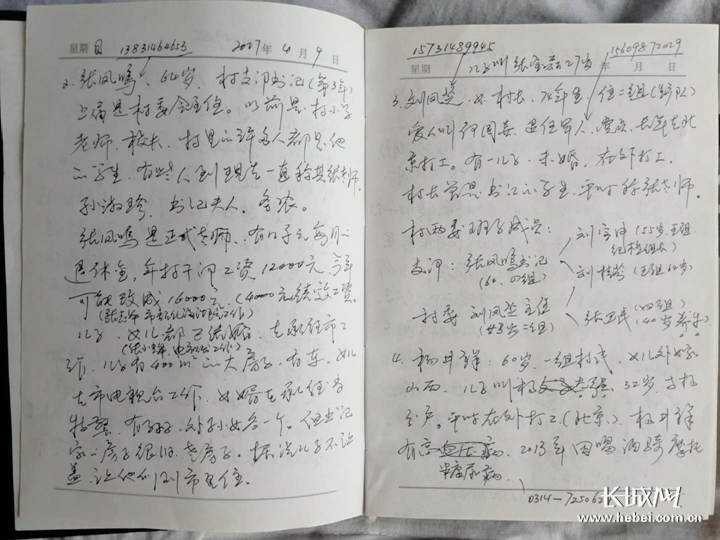 星期 日 13831464653 2017年 4月 9日
2. 张凤鸣、64岁、村支部书记(第3年)
上届是村委会主任。以前是村小学
老师、校长、村里的许多人都是他
的学生,有些人到现在一直称其张老师。
孙淑玲 书记夫人、务农。
张凤鸣是正式老师、有
退休金,年村干部工资12000元 今年
可能改成16000元(4000元绩效工资)
儿子、女儿都已结婚、在承德市工
作,儿子有400m²的大房子,有车。女儿
在市电视台工作、女婿在承德
有孙子、外孙女各一个。但书记
家的房子很旧,老房子。据说儿子不让
盖,让他们到市里住。
15731489945 15609872029
星期 年 月 日
儿子叫张 27岁
3. 刘凤芝、女、村长、 住二组(生产队)
爱人叫何国 退伍军人、党员、去年在北
京打工。有一儿子,未婚、在外打工。
村长曾是书记的学生,平时称张老师。
村两委班子成员:
刘宝 (55岁、五组 纪检组长)
支部:张凤鸣书记 (60. 四组)
刘桂 (五组 60岁)
村委 刘凤芝主任 (43岁二组)
张卫民 (四组) (40岁养牛)
4. 杨井祥:60岁,一组村民,女儿外嫁
山西,儿子叫杨 32岁
分户。平时在外打工(北京)。杨井祥
有高血压病 2013年因喝酒骑摩托
糖尿病
0314-725062
长城网
www.hebei.com.cn